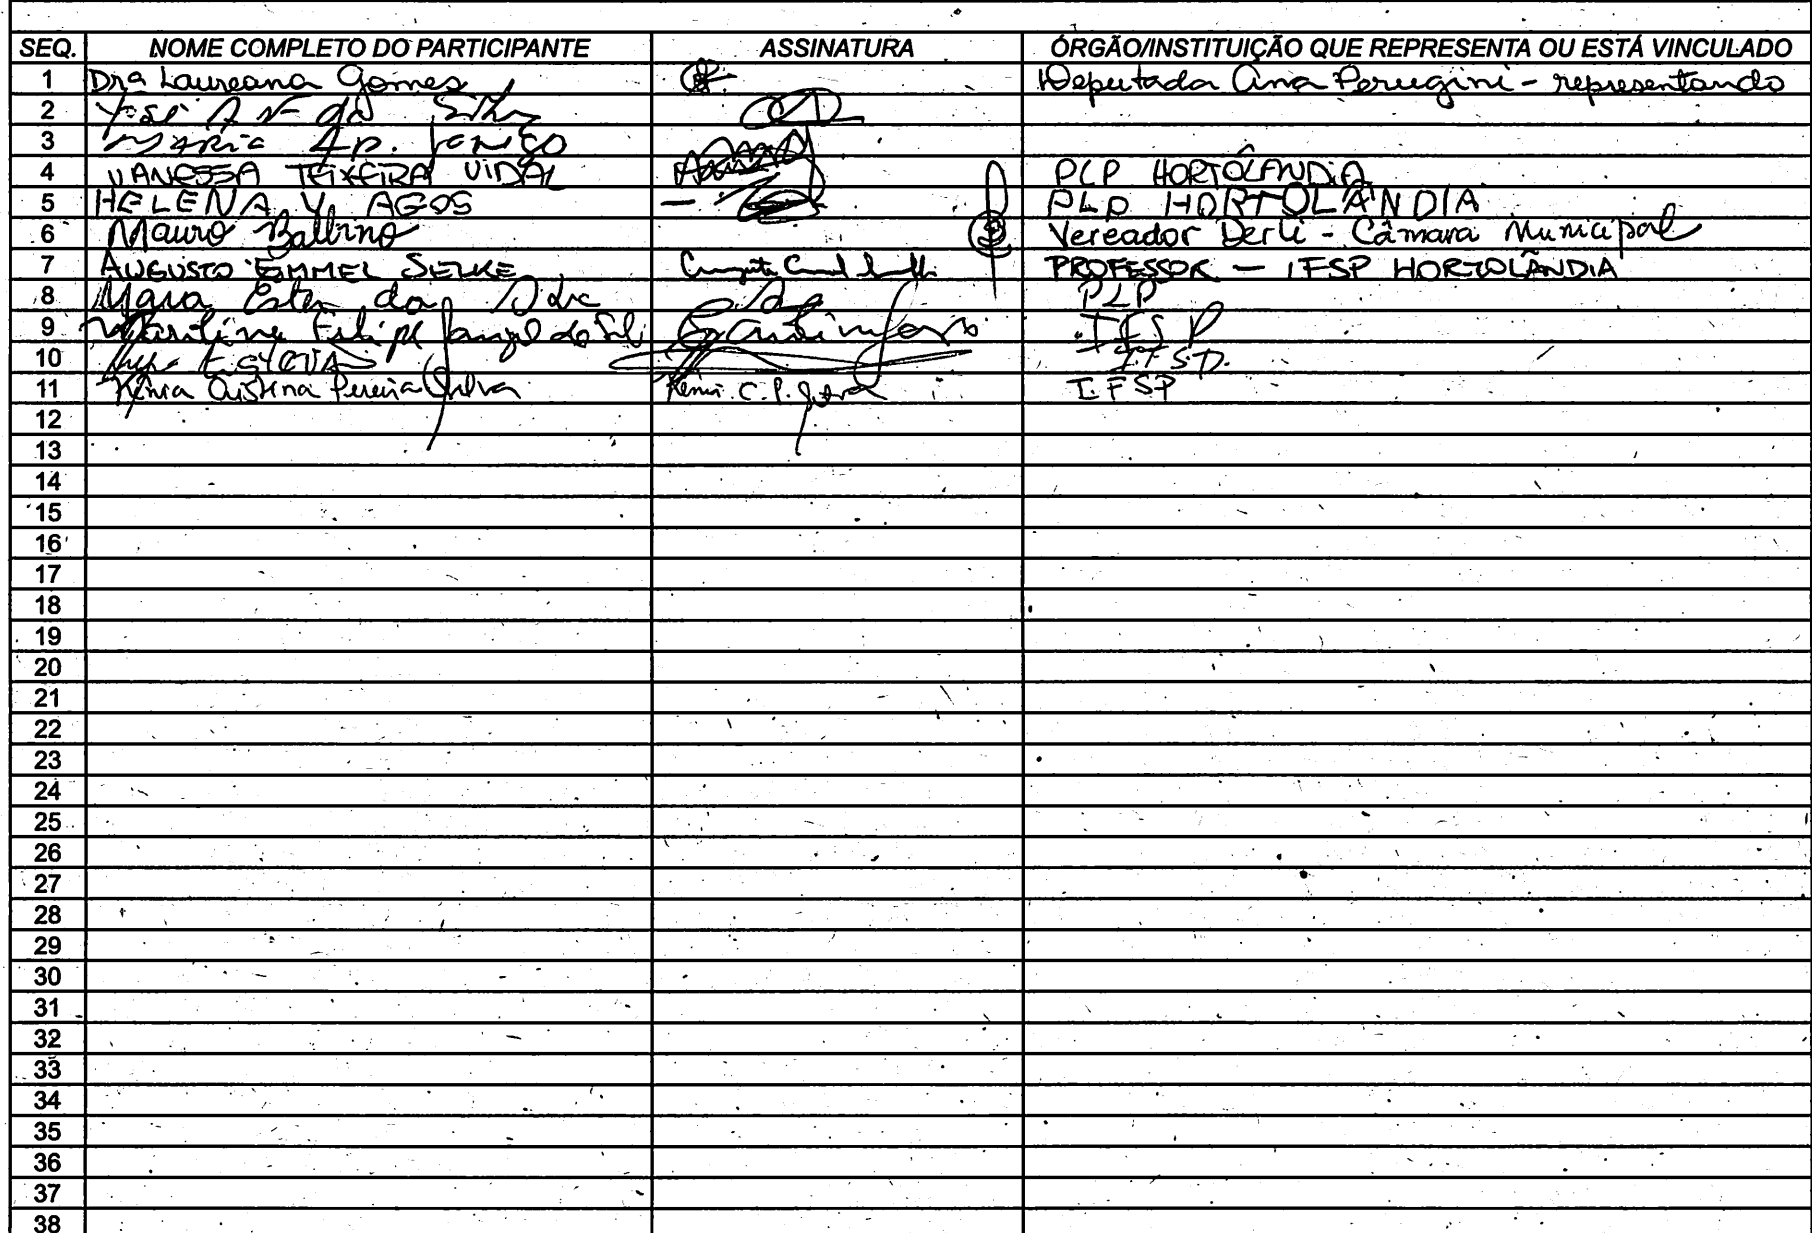 SEQ. NOME COMPLETO DO PARTICIPANTE ASSINATURA ÓRGÃO/INSTITUIÇÃO QUE REPRESENTA OU ESTÁ VINCULADO
1 Dra Laureana Gomes Deputada Ana Perugini - representando
2
3 Maria Ap.
4 VANESSA TEIXEIRA VIDAL PLP HORTOLÂNDIA
5 HELENA V. AGOS PLP HORTOLÂNDIA
6 Mauro Balbino Vereador Derli - Câmara Municipal
7 AUGUSTO EMMEL SELKE PROFESSOR - IFSP HORTOLÂNDIA
8 Mara Ester da PLP
9 IFSP
10 IFSP.
11 Kênia Cristina Pereira Silva Kênia C. P. Silva IFSP
12
13
14
15
16
17
18
19
20
21
22
23
24
25
26
27
28
29
30
31
32
33
34
35
36
37
38